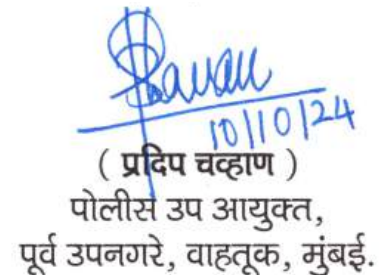 10/10/24
( प्रदिप चव्हाण )
पोलीस उप आयुक्त,
पूर्व उपनगरे, वाहतूक, मुंबई.